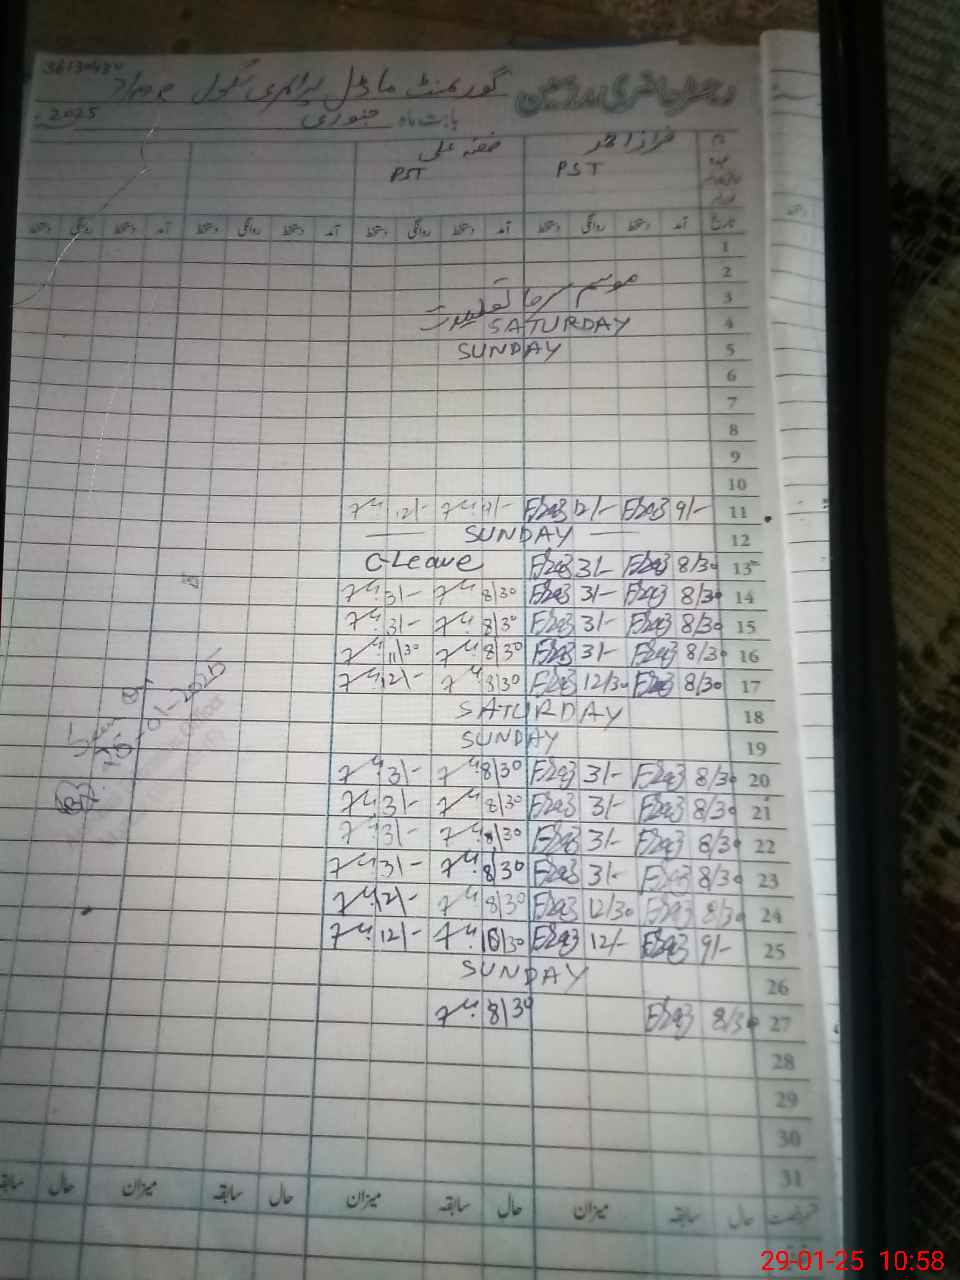 رجسٹر حاضری مدرسین گورنمنٹ ماڈل پرائمری سکول
بابت ماہ جنوری 2025
فراز احمد
PST PST
تاریخ آمد دستخط روانگی دستخط آمد دستخط روانگی دستخط آمد دستخط روانگی دستخط آمد دستخط روانگی دستخط
1
2
موسم سرما تعطیلات
3
SATURDAY 4
SUNDAY 5
6
7
8
9
10
11 9/- 12/- 12/-
SUNDAY 12
13 8/30 3/- C-Leave
14 8/30 3/- 8/30 3/-
15 8/30 3/- 8/30 3/-
16 8/30 3/- 8/30 11/30
17 8/30 12/30 8/30 12/-
SATURDAY 18
SUNDAY 19
20 8/30 3/- 8/30 3/-
21 8/30 3/- 8/30 3/-
22 8/30 3/- 8/30 3/-
23 8/30 3/- 8/30 3/-
24 8/30 12/30 8/30 12/-
25 9/- 12/- 12/-
SUNDAY 26
27 8/30 8/30
28
29
30
31
حال سابقہ میزان حال سابقہ میزان حال سابقہ میزان حال سابقہ
-01-2025
29-01-25 10:58